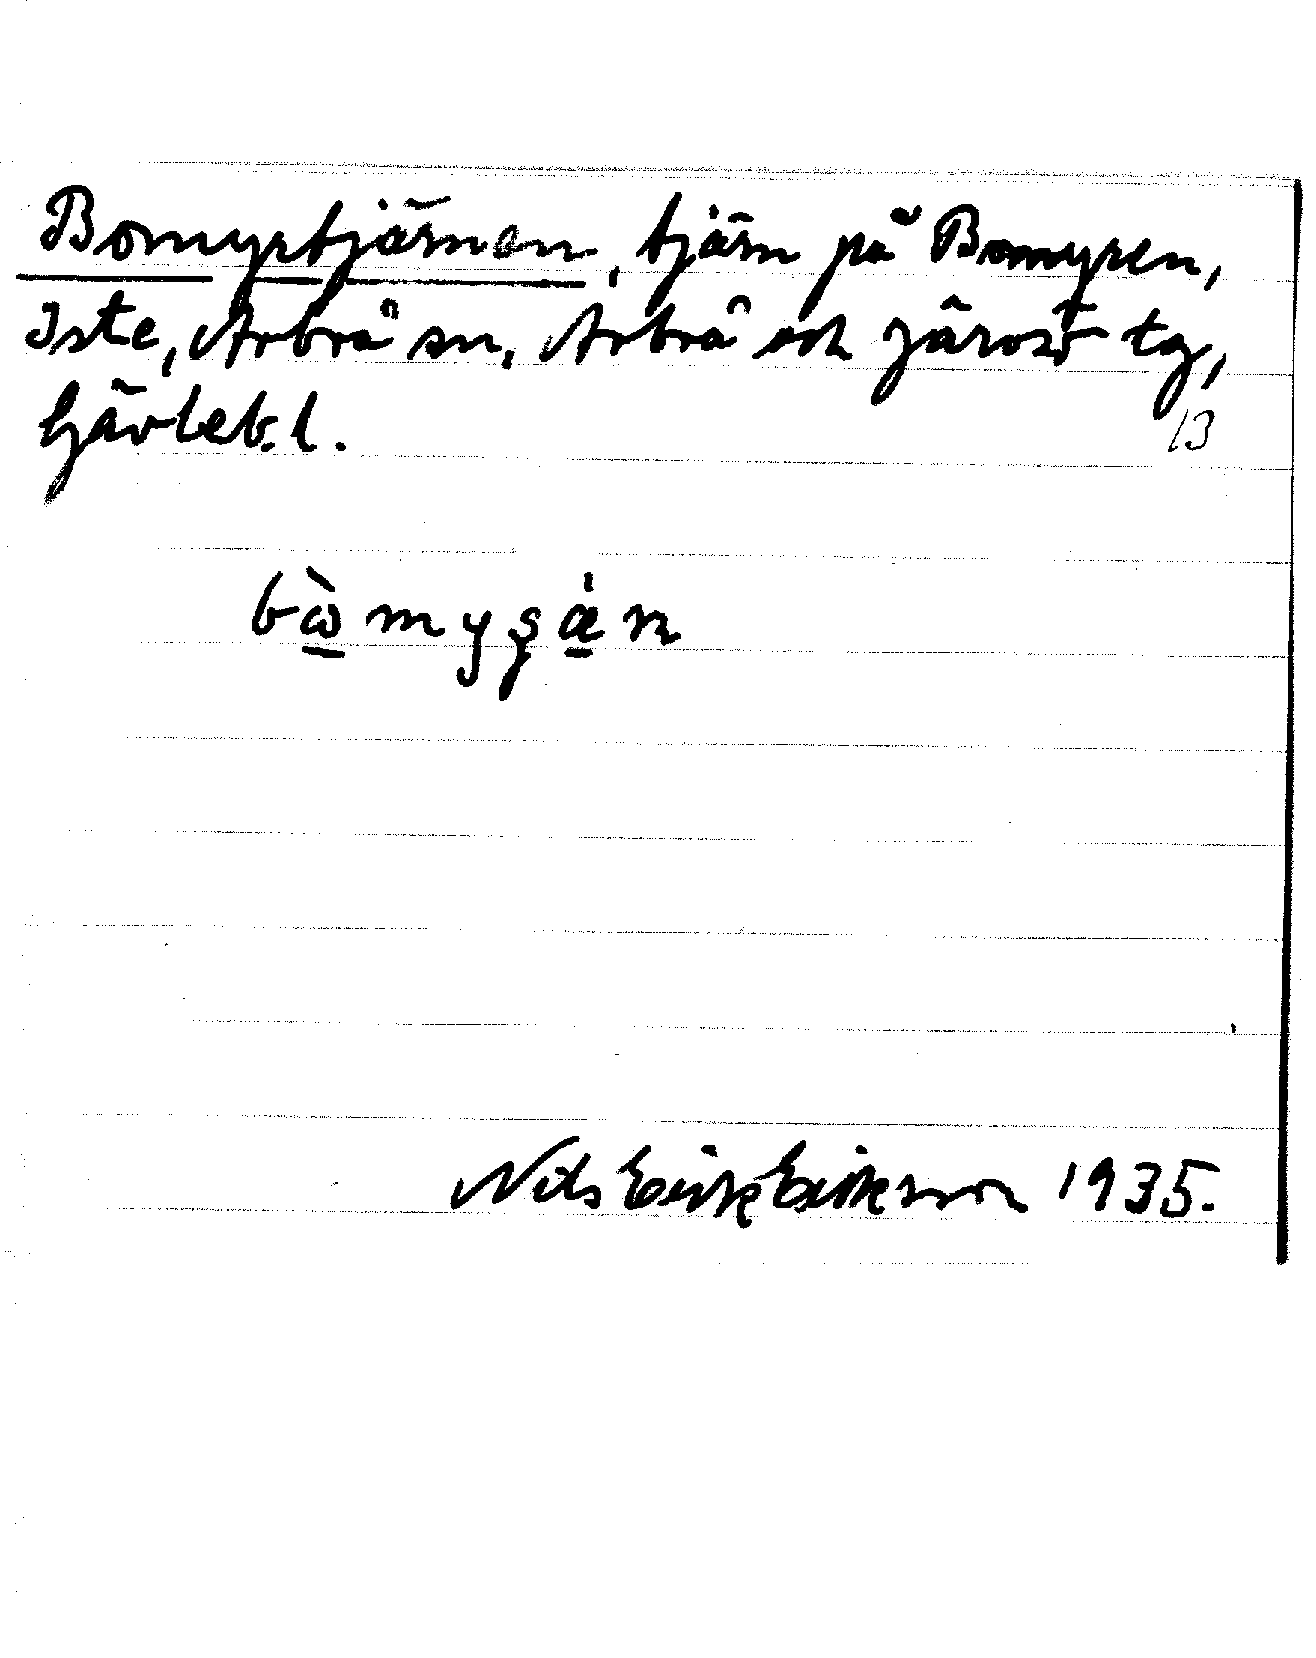 Bomyrtjärnen, tjärn på Bomyren,
Iste, Arbrå sn, Arbrå och Järvsö tg,
Gävleb. l.
13
bὼmygán
Nils Erik Eriksson 1935.